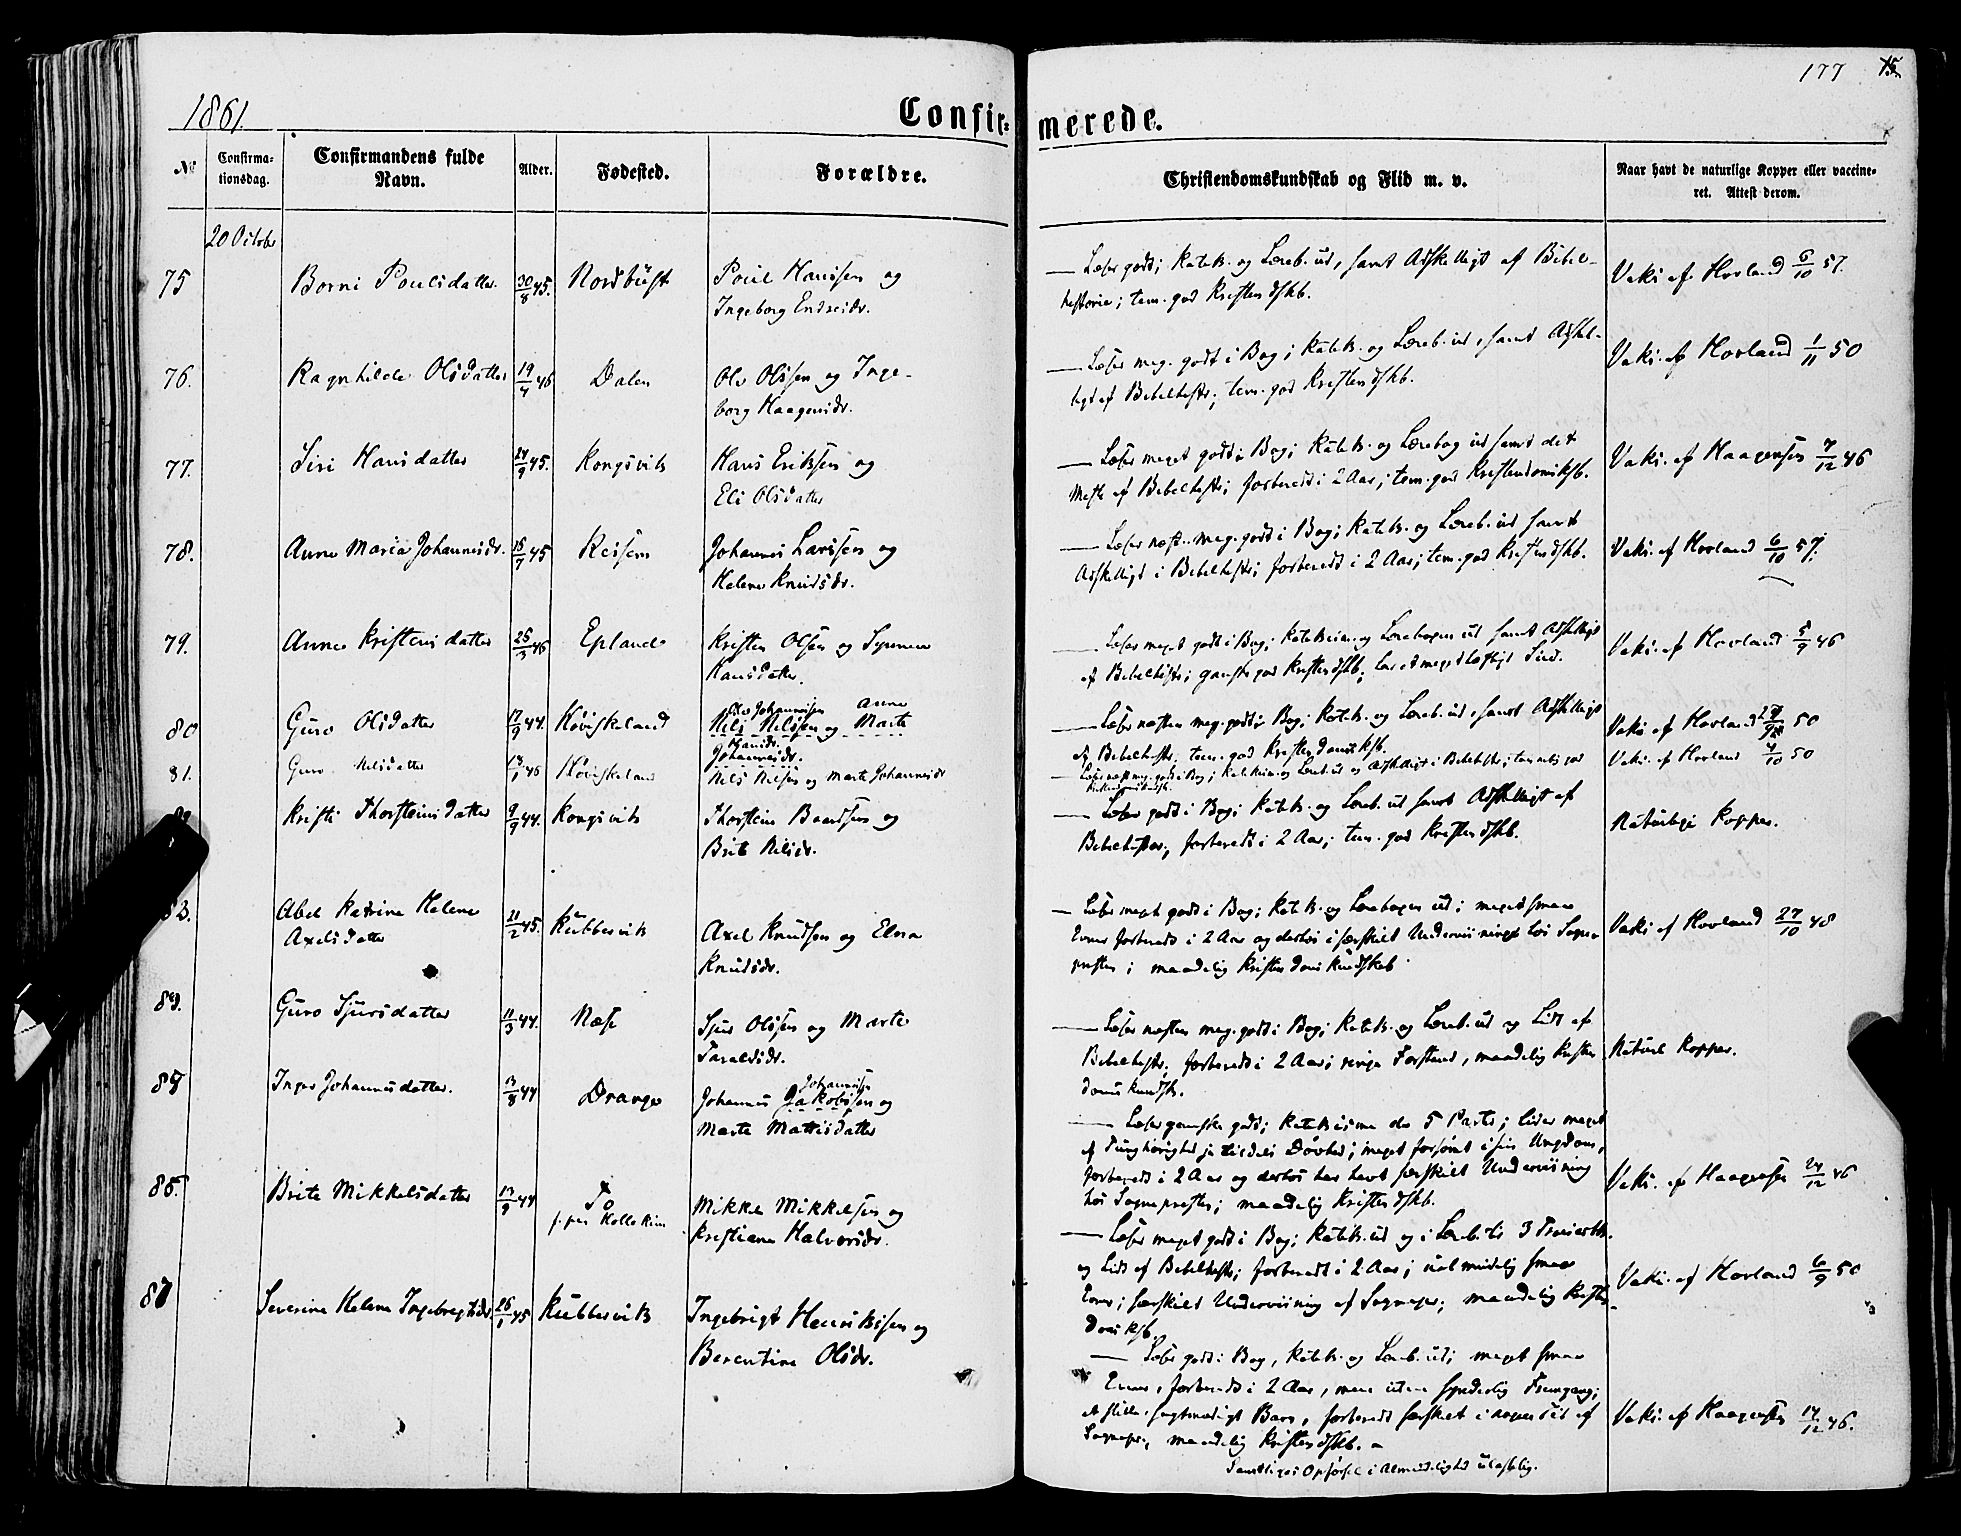 177
1861.
Confir- merede.
No
Confirma-
tionsdag.
Confirmandens fulde
Navn.
Alder.
Fødested.
Forældre.
Christendomskundskab og Flid m. v.
Naar havt de naturlige Kopper eller vaccine-
ret. Attest derom.
20 October
75 Borni Poulsdatter 30/8 45. Nordbust Poul Hansen og
Ingeborg Endreidr.
Læser godt; Katek. og Læreb. ud, samt Adskelligt af Bibel-
historie; tem. god Kristendskb.
Vaki af Hovland 6/10 57.
76. Ragnhilde Olsdatter 19/4 46 Dalen Ole Olsen og Inge-
borg Haagensdr.
Læser meg. godt i Bog; Katek. og Læreb. ud, samt Adskel-
ligt af Bibelhistr.; tem. god Kristendskb.
Vaki. af Hovland 1/11 50
77. Siri Hansdatter 24/9 45. Kongsvik Hans Eriksen og
Eli Olsdatter
Læser meget godt i Bog; Katek. og Lærebog ud samt det
Meste af Bibelhistr; forberedt i 2 Aar; tem. god Kristendomsksb.
Vaki. af Haagensen 7/12 46
78. Anne Maria Johannesdr. 15/7 45 Reisem Johannes Larssen og
Helene Knudsdr.
Læser næst. meg. godt i Bog; Katek. og Læreb. ud samt
Adskelligt i Bibelhistr; forberedt i 2 Aar; tem. god Kristendskb.
Vaki. af Hovland 6/10 57.
79. Anne Kristensdatter 25/3 46 Eplande Kristen Olsen og Synneve
Hansdatter.
Læser meget godt i Bog; Katekism. og Lærebogen ud samt Adskelligt
af Bibelhistr; ganske god Kristendskb;
Vaki. af Hovland 5/9 46
80 Guro Olsdatter 17/9 44. Høviskeland Ole Johannessen Anne
Nils Nilssen og Marte
Hansdr.
Johannesdr.
Læser næsten meg. godt i Bog; Katek. og Læreb. ud, samt Adskelligt
af Bibelhistr; tem. god Kristendomsksb.
Vaki af Hovland 50
81. Guro Nilsdatter 13/1 46 Høviskeland Nils Nilsen og Marte Johannesdr
Vaki. af Hovland 4/10 50
Kristi Thorsteinsdatter 9/9 44. Kongsvik Thorstein Baardsen og
Brite Nilsdr.
Læser godt i Bog; Katek. og Læreb. ud samt Adskelligt af
Bibelhistor; forberedt i 2 Aar; tem. god Kristendskb.
Naturlige Kopper.
83. Abel Katrine Helene
Axelsdatter 21/2 45. Kubbervik Axel Knudsen og Elna
Knudsdr.
Læser meget godt i Bog; Katek. og Lærebogen ud; meget smaa
Evner forberedt i 2 Aar og desto i særskilt Underviisning hos Sogne-
presten; maadelig Kristendomskundskab.
Vaki af Hovland 27/10 48
84. Guro Sjursdatter 11/3 44. Næse Sjur Olssen og Marte
Taraldsdr.
Læser næsten meg. godt i Bog; Katek. og Læreb. ud og Lidt af
Bibelhistr; forberedt i 2 Aar; ringe Forstand, maadelig Kristen
domskundsk.
Naturl Kopper.
Inger Johannesdatter. 13/8 44 Drange Johannessen
Johannes Jakobsen og
Marte Mattisdatter
Læser ganske godt; Katekisme de 5 Parter; lider meget
af Tunghørighed ja tildels Døvhed; meget forsømt i sin Ungdom,
forberedt i 2 Aar og desto har havt særskilt Underviisning
hos Sognepresten; maadelig Kristendskb.
Vaki. af Haagensen 24/12 46
86. Brite Mikkelsdatter 44 Tø
Mikkel Mikkelsen og
Kristiane Halvorsdr.
Læser meget godt i Bog; Katek. ud og i Læreb. til 3 Troesartk.
og Lidt af Bibelhistr; forberedt i 2 Aar; ualmindelig smaa
Evner; særskilt Underviisning af Sognepr; maadelig Kristen-
domsksb.
Vaki. af Hovland 6/9 50
87 Severine Helene Ingebregtsdr. 26/1 45 Kubbervik Ingebrigt Henriksen og
Berentine Olsdr.
Læser godt i Bog, Katek. og Læreb. ud; meget smaa
Evner, forberedt i 2 Aar, men uden synderlig Fremgang;
et stille sagtmodigt Barn, forberedt særskilt i nogen Tid af
Sognepr; maadelig Kristendskb. –
Vaki. af Haagensen 14/12 46.
Samtliges Opførsel i Almindelighed ulastelig.